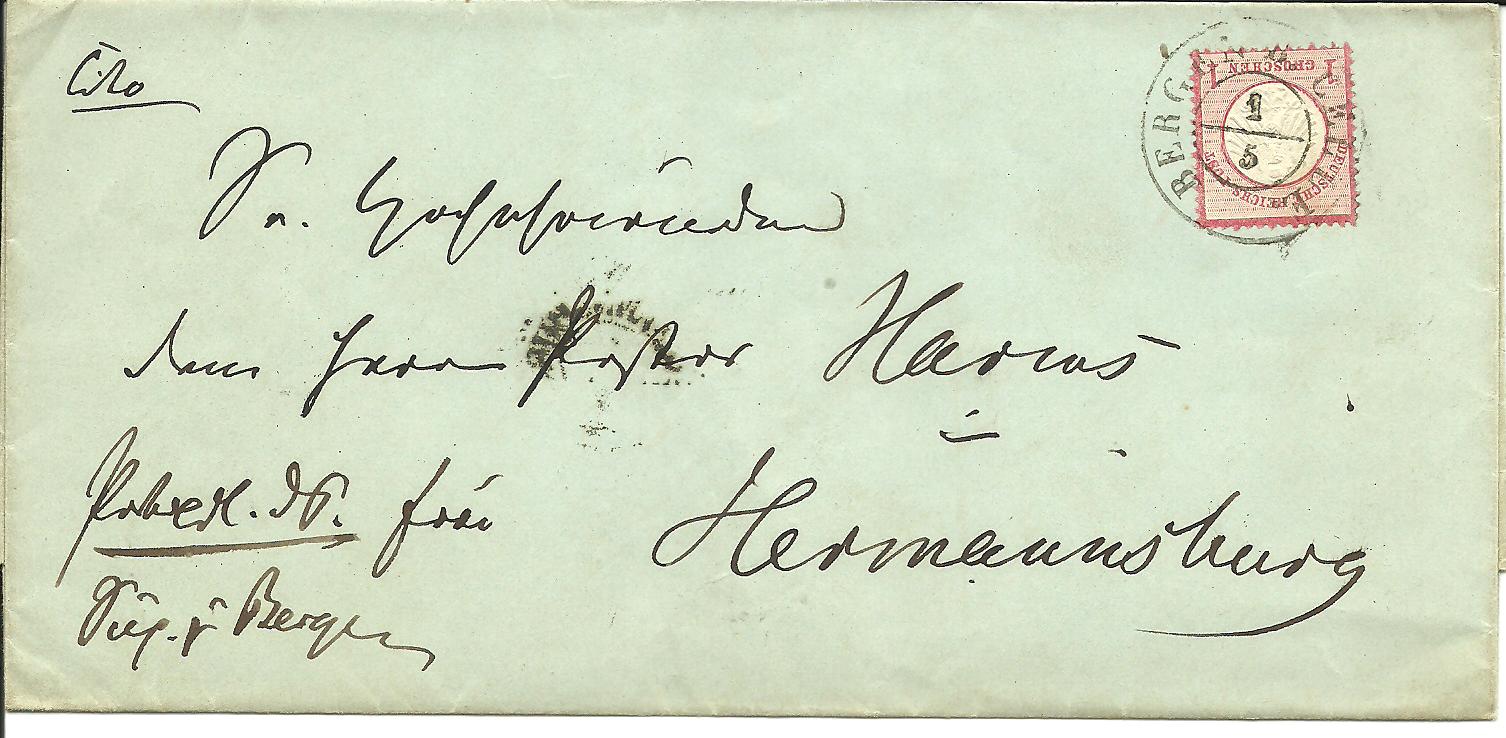 Cito
Sr. Hochehrwürden
dem Herrn Pastor Harms
in
Hermannsburg
frei
Sup. z Bergen
BERGEN B CELLE
1
5
1 GROSCHEN 1
DEUTSCHE REICHS-POST